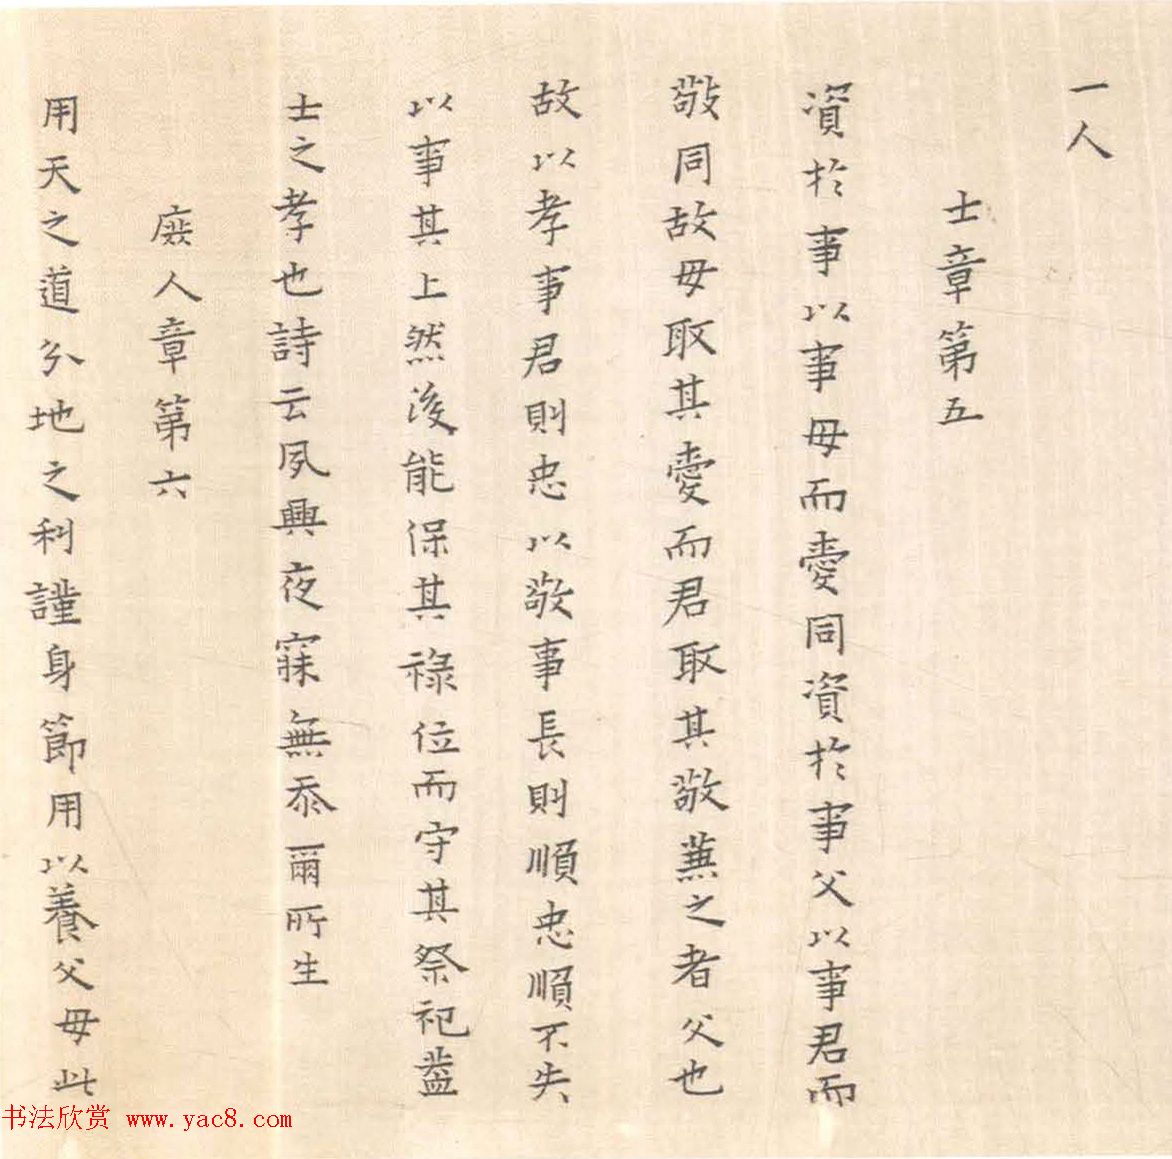 一人
士章第五
資於事以事母而愛同資於事父以事君而
敬同故母取其愛而君取其敬兼之者父也
故以孝事君則忠以敬事長則順忠順不失
以事其上然後能保其祿位而守其祭祀蓋
士之孝也詩云夙興夜寐無忝爾所生
庶人章第六
用天之道分地之利謹身節用以養父母此
书法欣赏 www.yac8.com